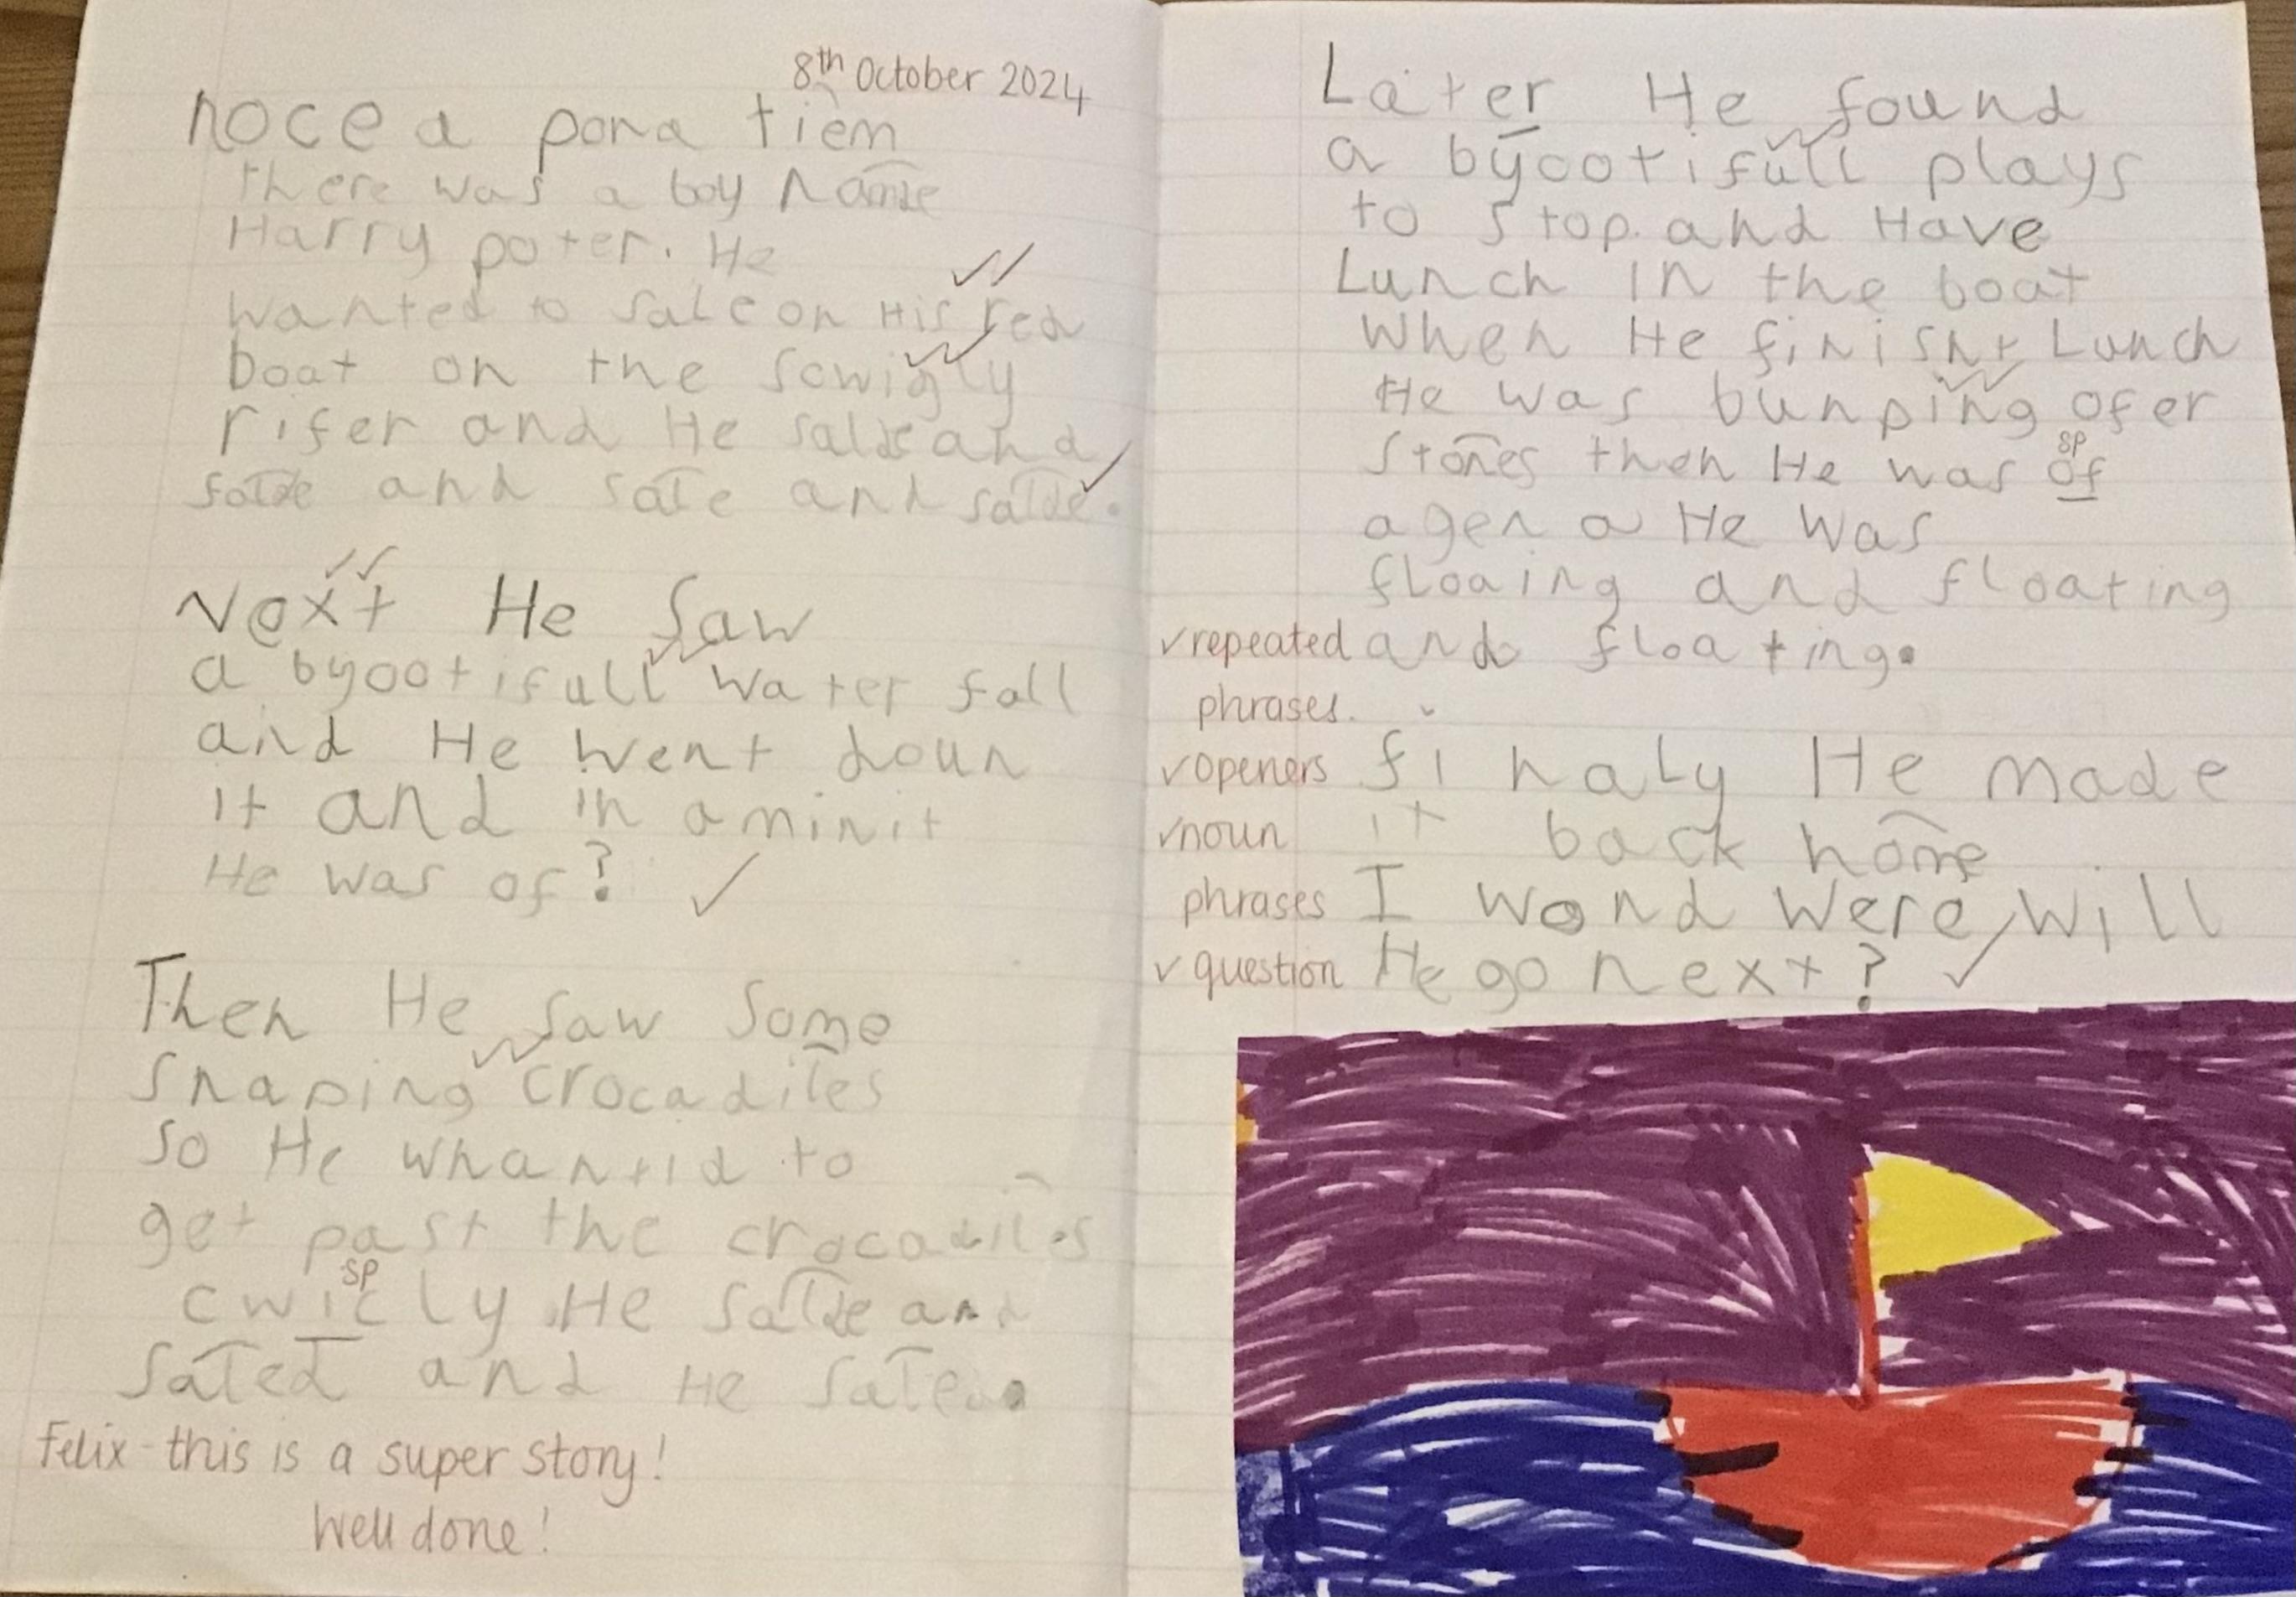 8th October 2024
noce a pona tiem
there was a boy name
Harry poter. He
wanted to sale on His red
boat on the sowigly
rifer and He salde and
salde and sale and salde.
Next He saw
a byootifull water fall
and He went doun
it and in a minit
He was of?
Then He saw some
snaping crocadiles
so He whantid to
get past the crocadiles
sp
cwicly He salde and
saled and He sale.
Felix - this is a super story!
Well done!
Later He found
a byootifull plays
to stop and Have
Lunch in the boat
when He finisht Lunch
He was bunping ofer
sp
stones then He was of
agen a He was
floaing and floating
✓repeated and floating.
phrases.
✓openers finaly He made
✓noun it back home
phrases I wond were will
✓question He go next?